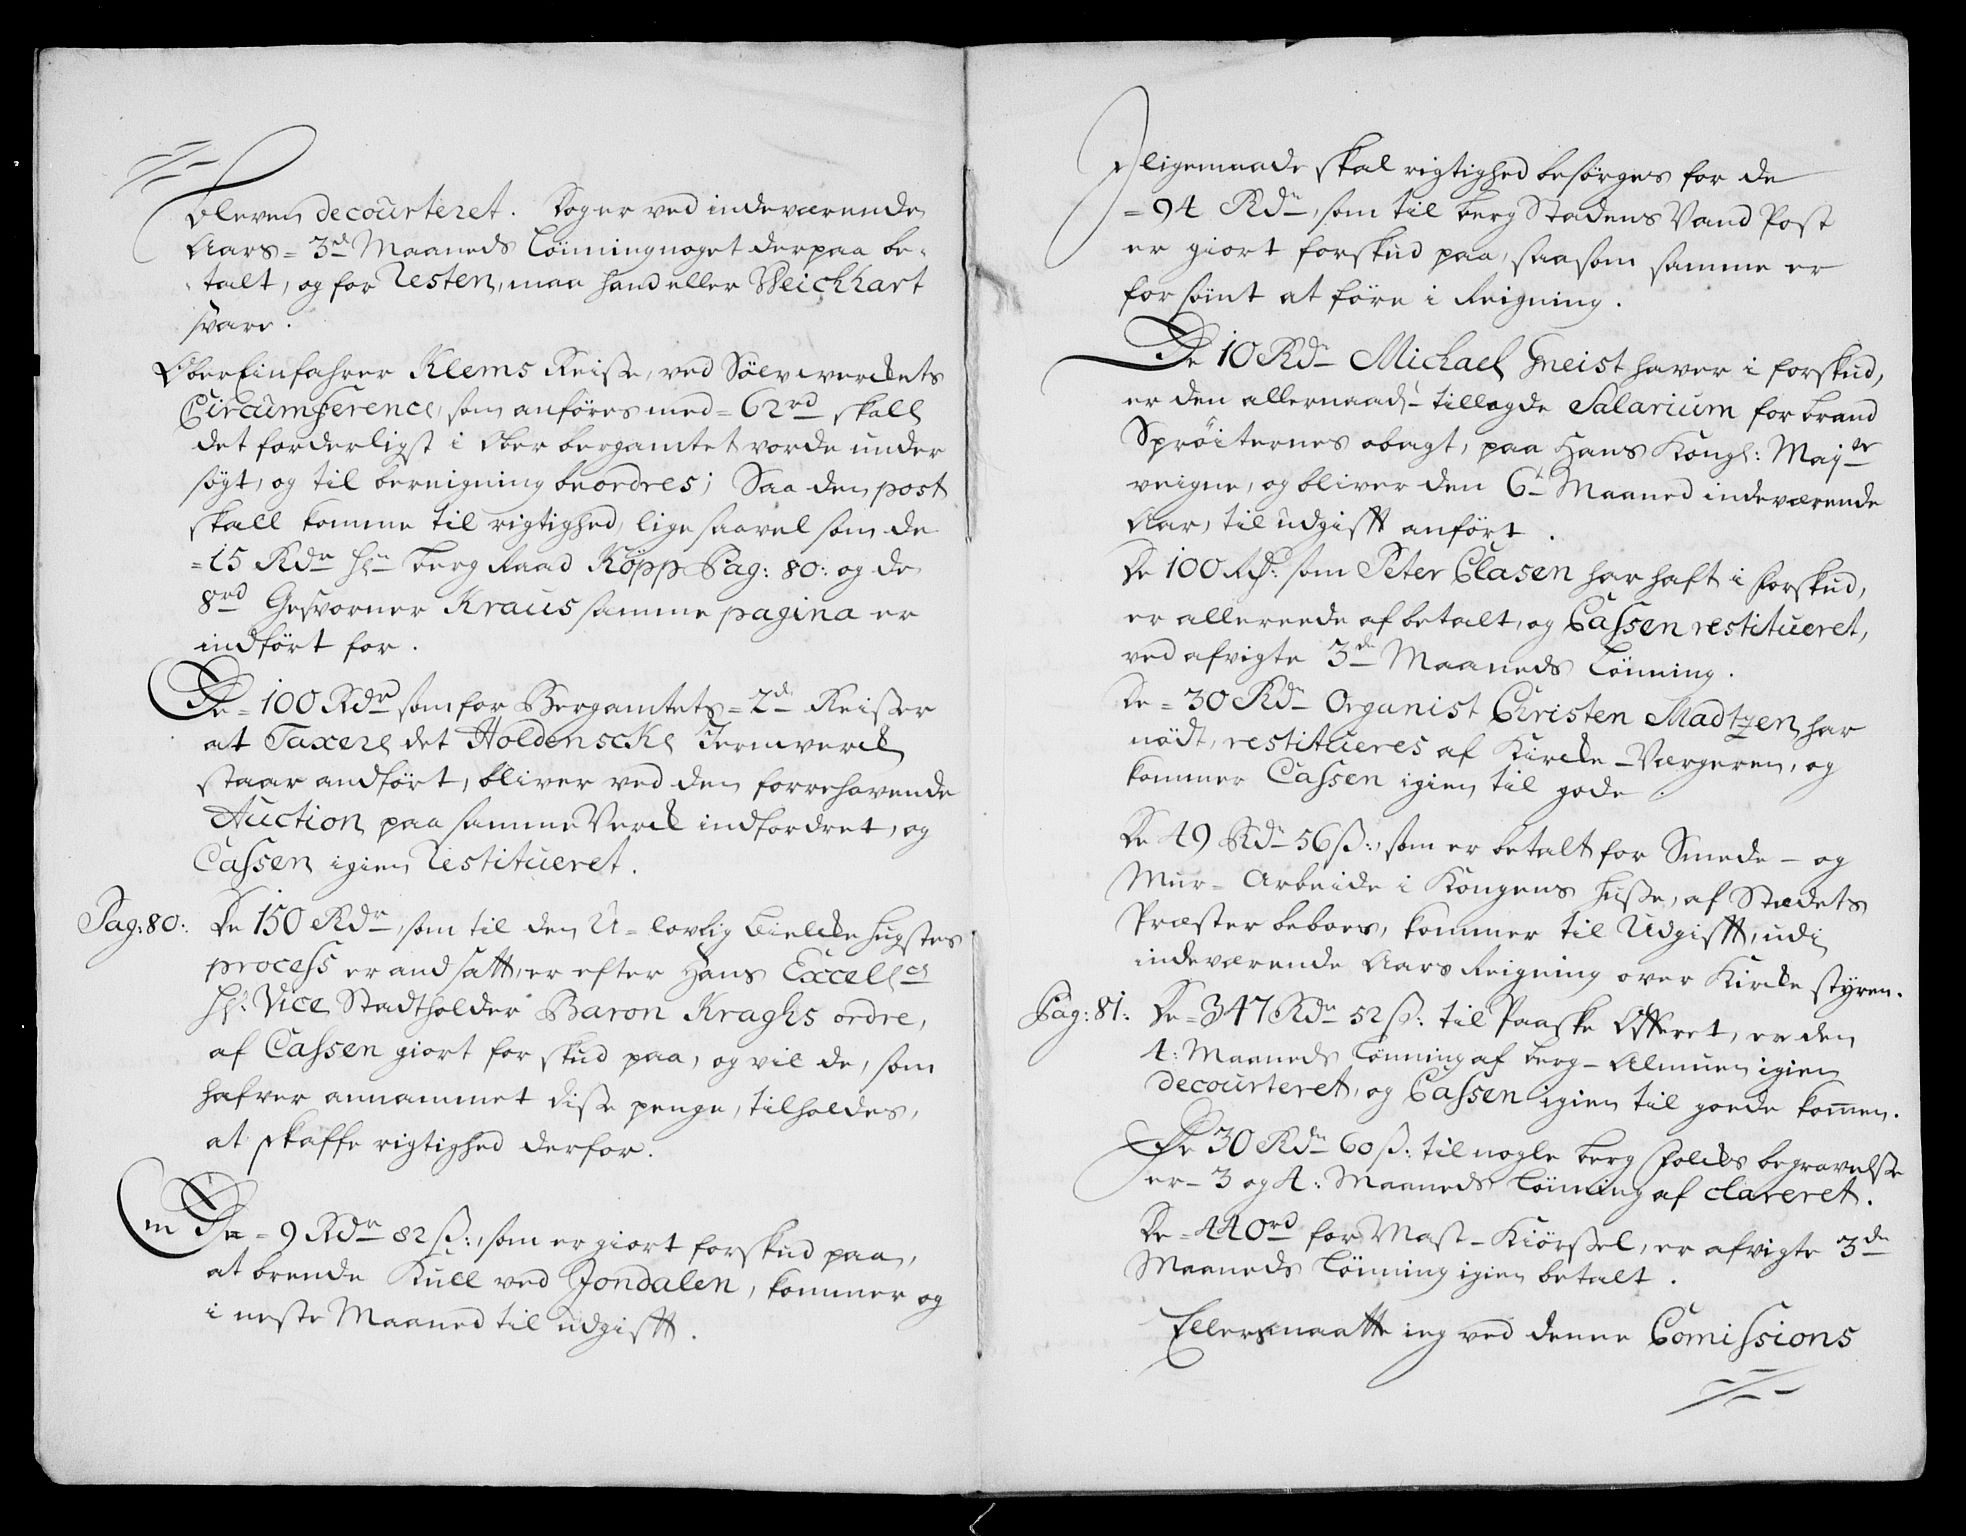 bleven decourteret. Dog er ved indeværende
Aars = 3de Maaneds Lønning noget derpaa be-
talt, og for Resten, maa hand eller Weichhart
svare.
Ober Einfahrer Klems Reise, ved Sølvverckets
Circumference, som anføres med = 62 rd skall
det forderligst i Ober bergamtet vorde under
søgt, og til bereigning beordres; Saa den post
skall komme til rigtighed, lige saavel som de
=15 Rdr Hr Berg Raad Köpp Pag: 80: og de
8 rd Gesvorner Kraus samme pagina er
indført for.
De = 100 Rdr som for Bergamtets = 2de Reiser
at Taxere det Holdenscke Jernverck
staar andført, bliver ved den forrehavende
Auction paa samme Verck indfordret, og
Cassen igien Restitueret.
Pag: 80: De 150 Rdr, som til den U=lovlig Fielde hugstes
process er andsatt, er efter Hans Excellces
Hr. Vice Stadtholder Baron Kraghs ordre,
af Cassen giort forskud paa, og vil de, som
hafver annammet disse penge, tilholdes,
at skaffe rigtighed derfor.
De = 9 Rdr 82 ß:, som er giort forskud paa,
at brende Kull ved Jondalen, kommer og
i neste Maaned til udgifft.
I ligemaade skal rigtighed besørges for de
= 94 Rdr, som til Berg Stadens Vand Post
er giort forskud paa, saasom samme er
forsømt at føre i Reigning.
De 10 Rdr Michael Gneist haver i forskud,
er den allernaadt tillagde Salarium for brand
Sprøiternes obagt, paa Hans Kongl: Mayts
veigne, og bliver den 6te Maaned indeværende
Aar, til udgifft anført.
De 100 Rd: som Peter Clasen har haft i forskud,
er allereede afbetalt, og Cassen restitueret,
ved afvigte 3de Maaneds Lønning.
De = 30 Rdr Organist Christen Madtzen har
nødt, restitueres af Kircke-Værgeren, og
kommer Cassen igien til gode.
De 49 Rdr 56 ß:, som er betalt for Smede- og
Mur-Arbeide i Kongens Huse, af Stedets
Præster beboes, kommer til Udgifft, udi
indeværende Aars Reigning over Kircke styren.
Pag: 81: De = 347 Rdr 52 ß: til Paaske Offeret, er den
4: Maaneds Lønning af Berg-Almuen igien
decourteret, og Cassen igien til goede kommen.
De 30 Rdr 60 ß: til nogle Berg Folckes begravelse
er = 3 og 4: Maaneds Lønning af clareret.
De = 440 rd for Mast-Kiørsel, er afvigte 3de
Maaneds Lønning igien betalt.
Ellers maatte ieg ved denne Comissions